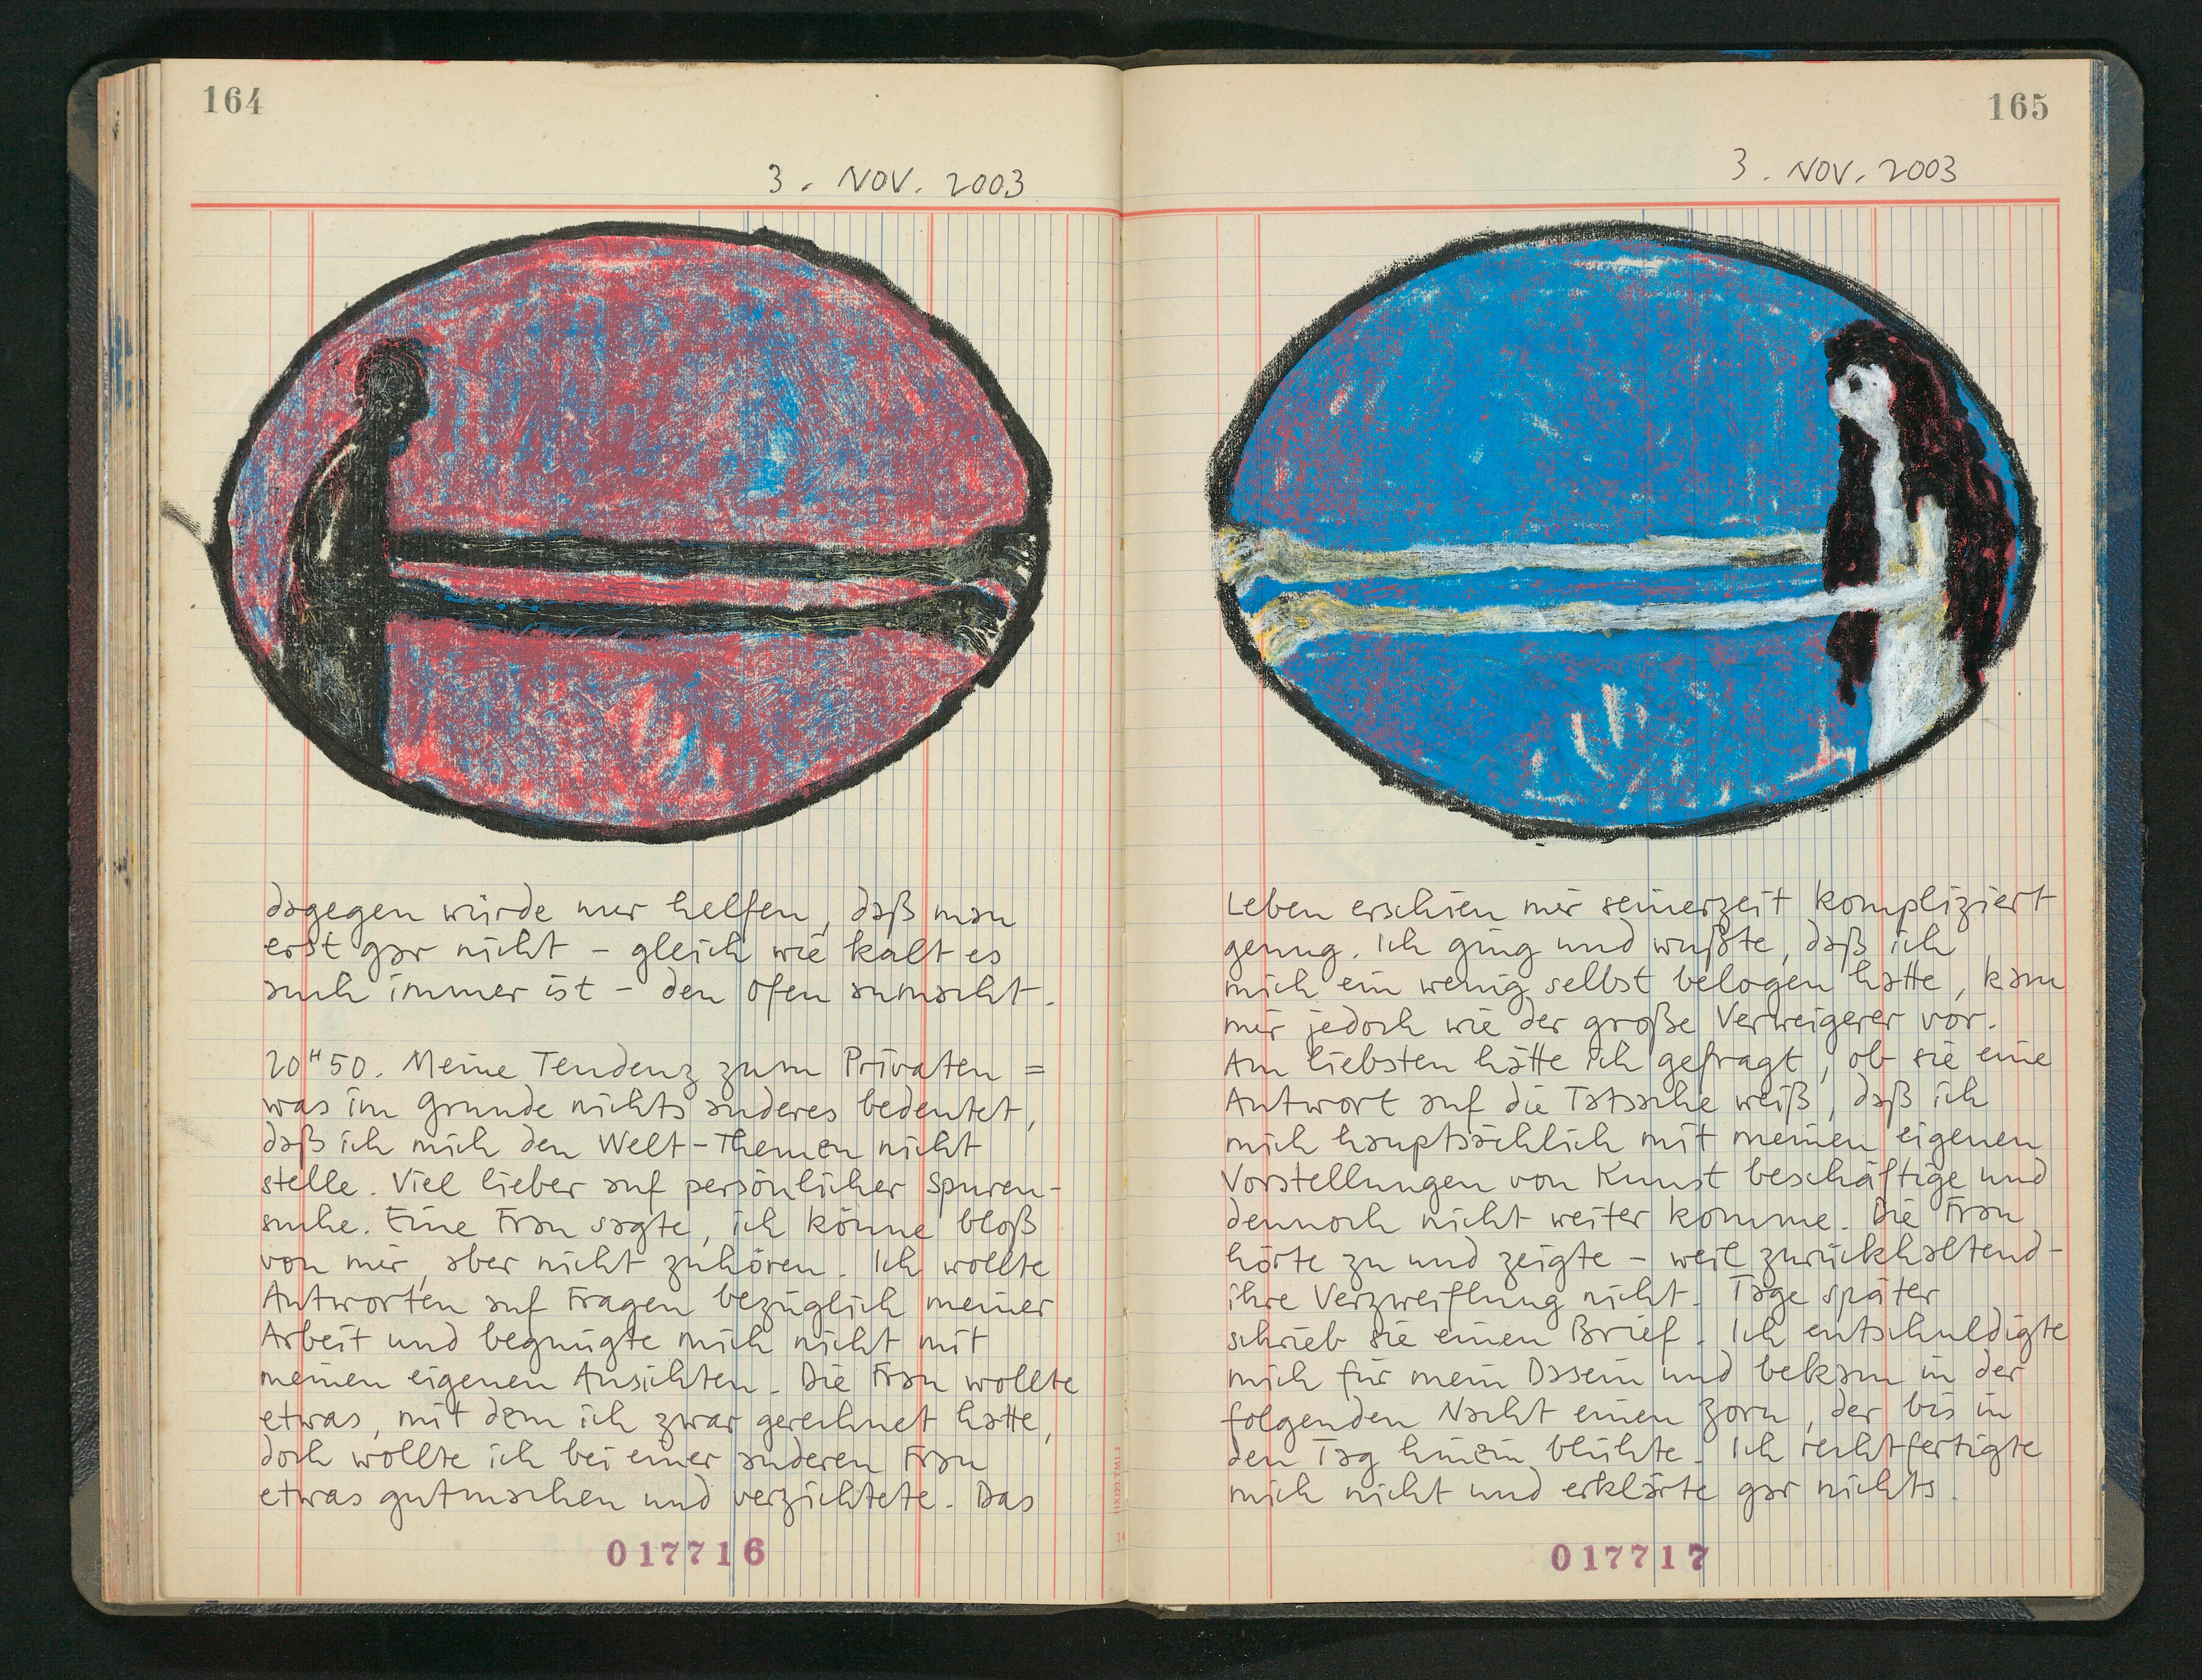 164
3. NOV. 2003
dagegen würde nur helfen, daß man
erst gar nicht - gleich wie kalt es
auch immer ist - den Ofen anmacht.
20H50. Meine Tendenz zum Privaten =
was im Grunde nichts anderes bedeutet,
daß ich mich den Welt-Themen nicht
stelle. Viel lieber auf persönlicher Spuren-
suche. Eine Frau sagte, ich könne bloß
von mir, aber nicht zuhören. Ich wollte
Antworten auf Fragen bezüglich meiner
Arbeit und begnügte mich nicht mit
meinen eigenen Ansichten. Die Frau wollte
etwas, mit dem ich zwar gerechnet hatte,
doch wollte ich bei einer anderen Frau
etwas gutmachen und verzichtete. Das
017716
165
3. NOV. 2003
Leben erschien mir seinerzeit kompliziert
genug. Ich ging und wußte, daß ich
mich ein wenig selbst belogen hatte, kam
mir jedoch wie der große Verweigerer vor.
Am liebsten hätte ich gefragt, ob sie eine
Antwort auf die Tatsache weiß, daß ich
mich hauptsächlich mit meinen eigenen
Vorstellungen von Kunst beschäftige und
dennoch nicht weiter komme. Die Frau
hörte zu und zeigte - weil zurückhaltend -
ihre Verzweiflung nicht. Tage später
schrieb sie einen Brief. Ich entschuldigte
mich für mein Dasein und bekam in der
folgenden Nacht einen Zorn, der bis in
den Tag hinein blühte. Ich rechtfertigte
mich nicht und erklärte gar nichts.
017717